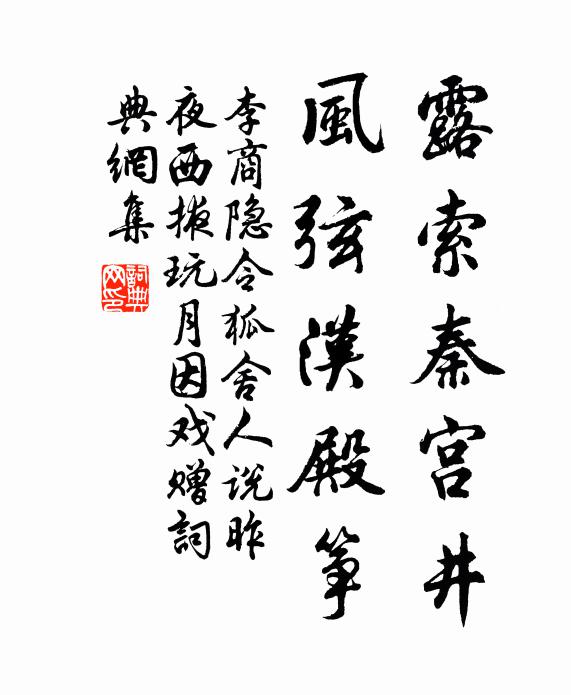 露索秦宮井
風弦漢殿筝
李商隐令狐舍人说昨
夜西掖玩月因戏赠詞
典網集
詞典网印